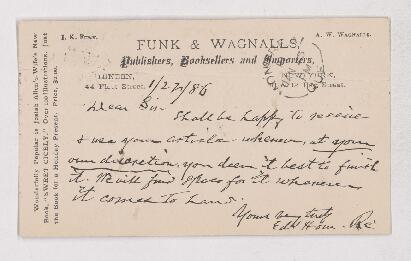 I. K. Funk.
A. W. Wagnalls.
FUNK & WAGNALLS,
Publishers, Booksellers and Importers,
LONDON,
44 Fleet Street.
NEW YORK,
Street.
1/27/86
Dear Sir
Shall be happy to receive
& use your article whenever, at your
own discretion, you deem it best to finish
it. We will find space for it whenever
it comes to hand.
Yours very truly
Ed. Hom. Re
Wonderfully Popular is Josiah Allen's Wife's New
Book, "SWEET CICELY." Over 100 Illustrations. Just
the Book for a Holiday Present. Price, $2.00.